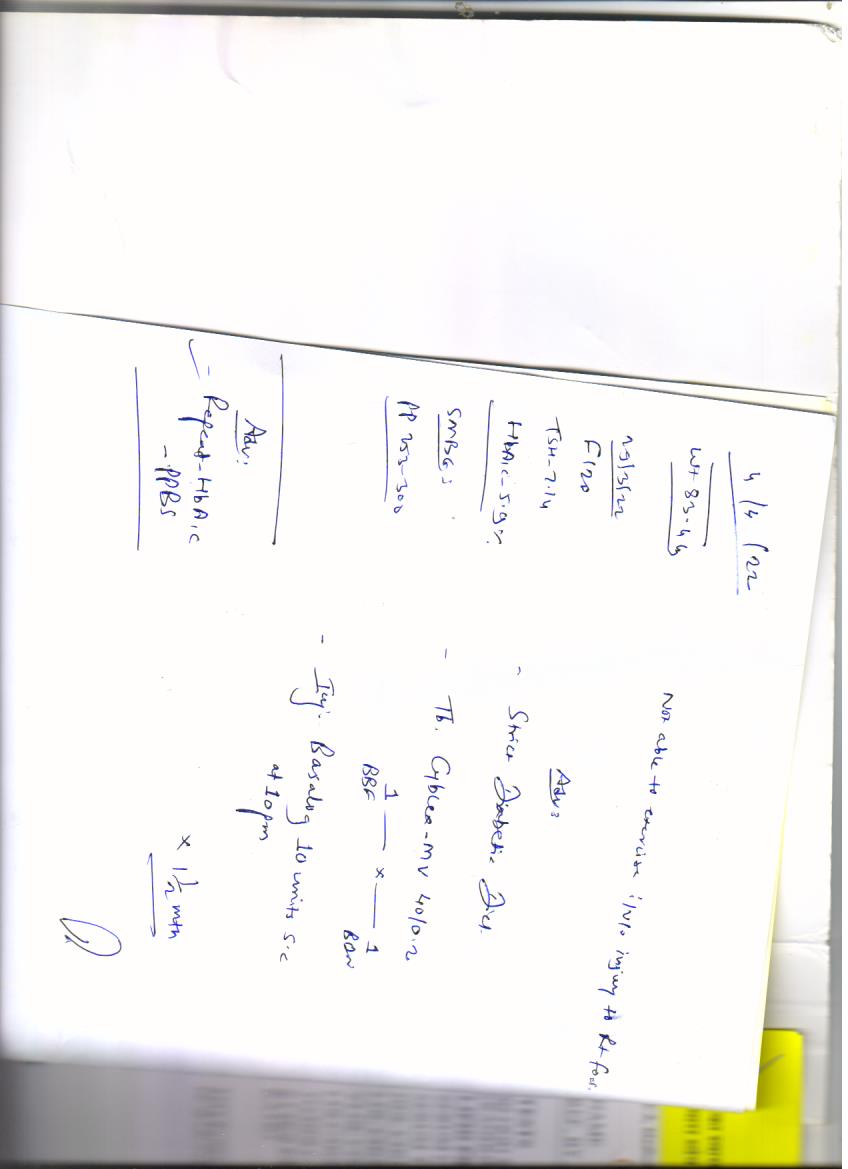 4/4/22
Wt 83.44
Not able to exercise i/v/o injury to Rt foot.
29/3/22
F120
TSH-7.14
HbA1c-5.9%
SMBG:
PP 252-300
Adv:
- Strict Diabetic Diet
- Tb. Cyblex-MV 40/0.2
1 — x — 1
BBF BDN
- Inj. Basalog 10 units s.c
at 10pm
x 1 1/2 mth
Adv:
- Repeat-HbA1c
- PPBS